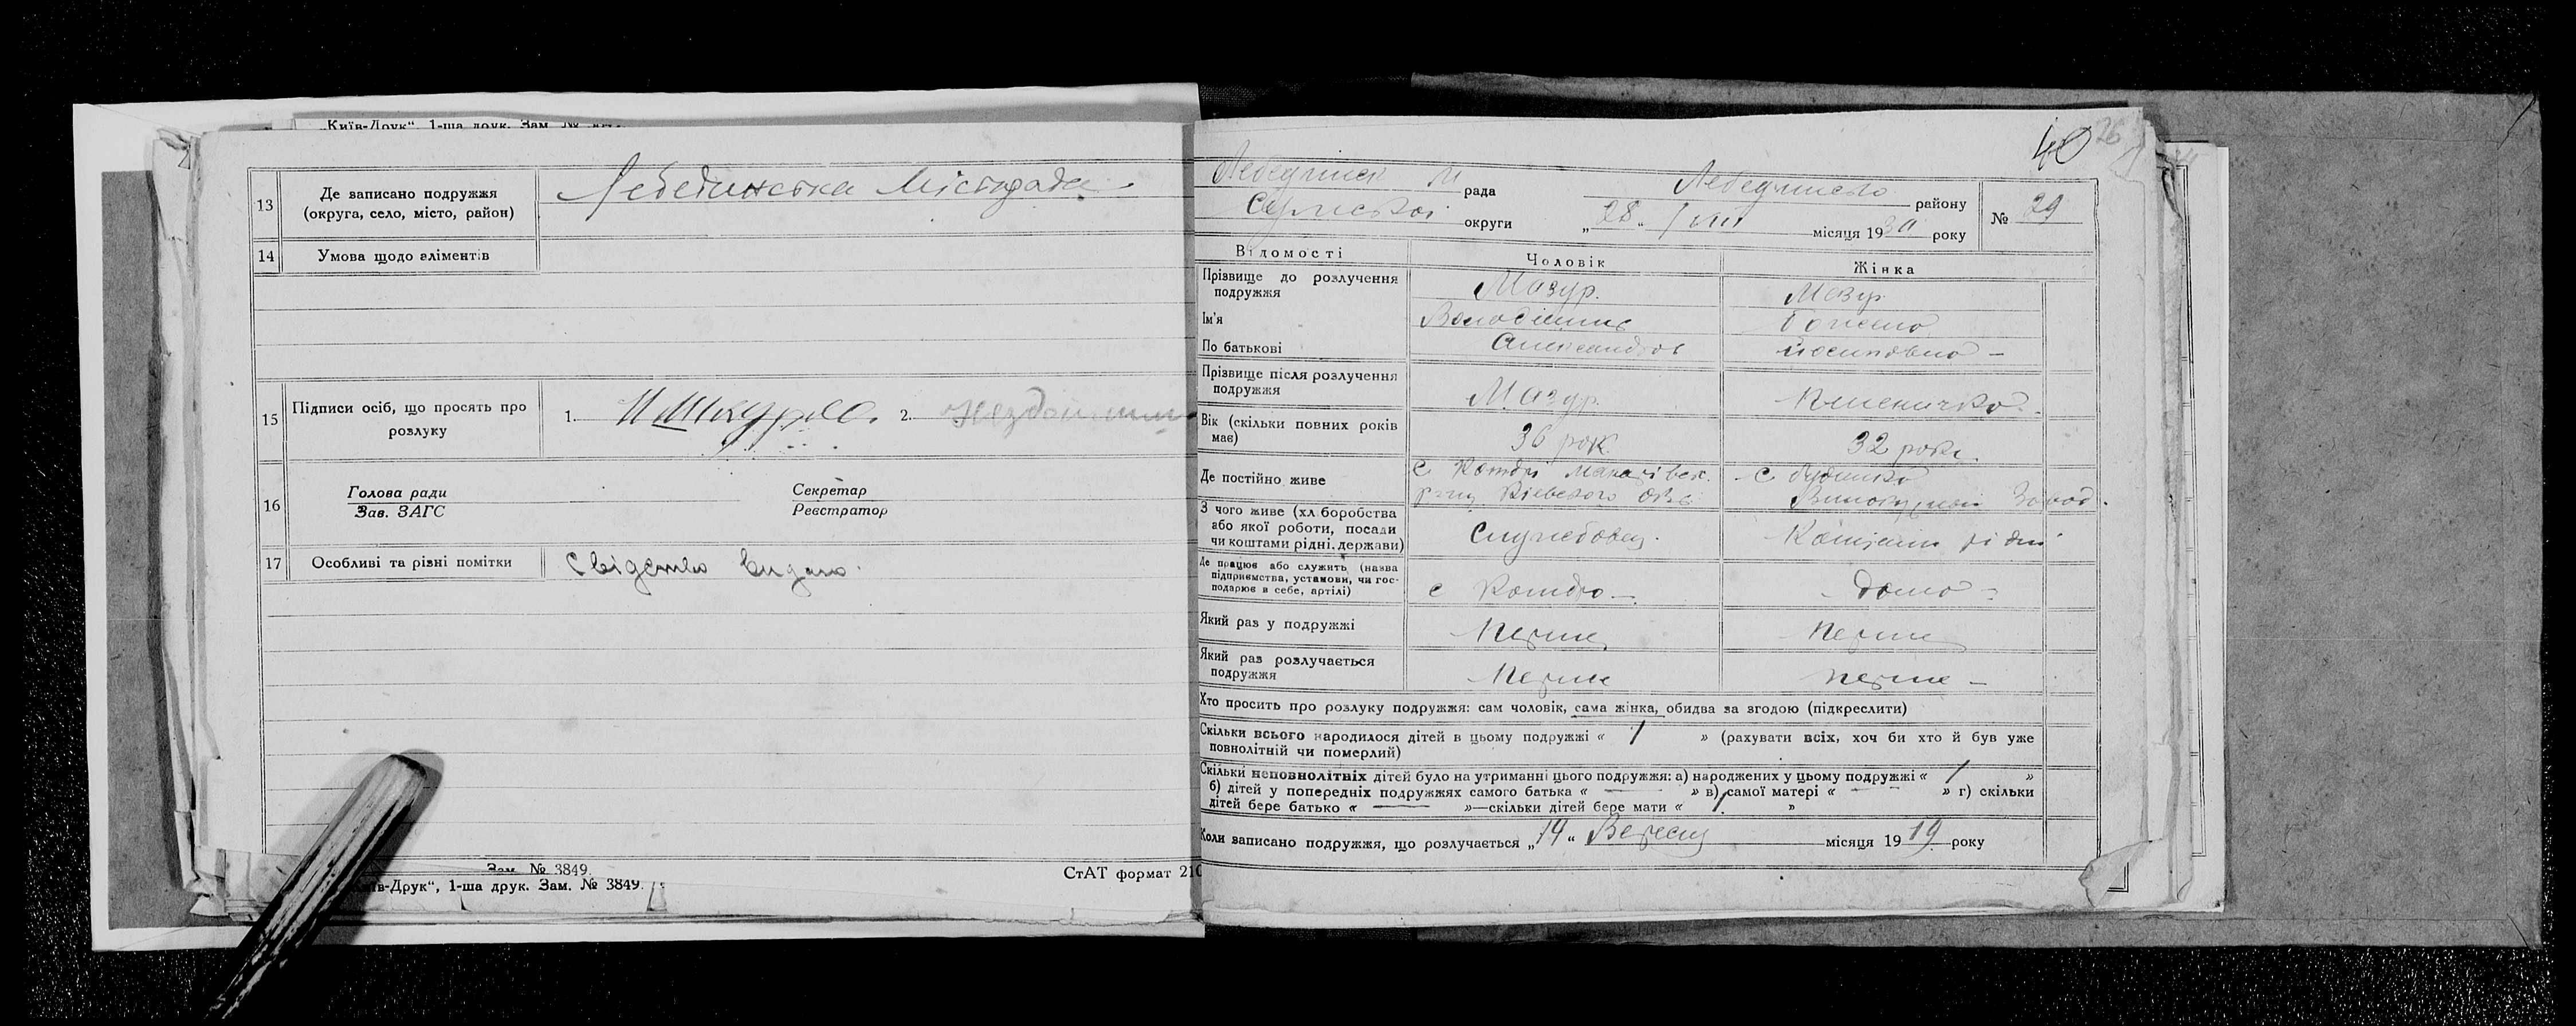 „Київ-Друк“, 1-ша друк. Зам. №
13
Де записано подружжя
(округа, село, місто, район)
Лебединська Міськрада
14
Умова щодо аліментів
15
Підписи осіб, що просять про
розлуку
1.
2.
16
Голова ради
Зав. ЗАГС
Секретар
Реєстратор
17
Особливі та різні помітки
Свідетство видано.
Зам. № 3849.
їв-Друк“, 1-ша друк. Зам. № 3849.
СтАТ формат 210
40 26
Лебединск М рада
Лебединсько району
Сумської округи
„28“ VIII місяця 1930 року
№ 29
Відомості
Чоловік
Жінка
Прізвище до розлучення
подружжя
Мазур.
Мазур
Ім'я
Володимир
По батькові
Александров
Йосиповна –
Прізвище після розлучення
подружжя
Мазур.
Пшеничко.
Вік (скільки повних років
має)
36 рок.
32 роки.
Де постійно живе
с
с
З чого живе (хліборобства
або якої роботи, посади
чи коштами рідні, держави)
Службовец.
Коштами рідні
Де працює або служить (назва
підприємства, установи, чи гос-
подарює в себе, артілі)
с
– дома –
Який раз у подружжі
Перше
Перше
Який раз розлучається
подружжя
Перше
перше –
Хто просить про розлуку подружжя: сам чоловік, сама жінка, обидва за згодою (підкреслити)
Скільки всього народилося дітей в цьому подружжі « 1 » (рахувати всіх, хоч би хто й був уже
повнолітній чи померлий)
Скільки неповнолітніх дітей було на утриманні цього подружжя: а) народжених у цьому подружжі « 1 »
б) дітей у попередніх подружжях самого батька « — » в) самої матері « — » г) скільки
дітей бере батько « — »—скільки дітей бере мати « 1 »
Коли записано подружжя, що розлучається „14“ Вересня місяця 1919 року